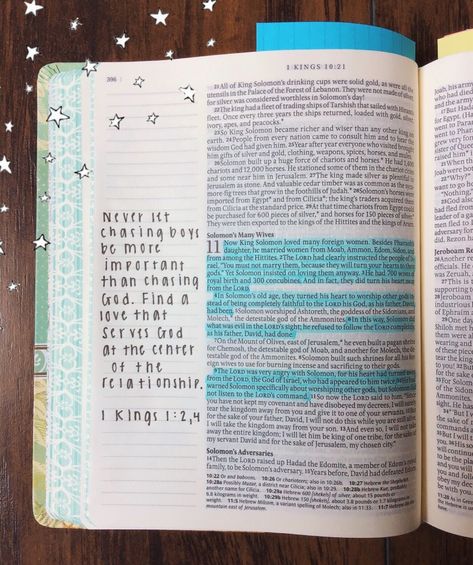 396
1 KINGS 10:21
Never let
chasing boys
be more
important
than chasing
God. Find a
love that
serves God
at the center
of the
relationship.
1 Kings 1:2,4
21 All of King Solomon's drinking cups were solid gold, as were all the
utensils in the Palace of the Forest of Lebanon. They were not made of silver,
for silver was considered worthless in Solomon's day!
22 The king had a fleet of trading ships of Tarshish that sailed with Hiram's
fleet. Once every three years the ships returned, loaded with gold, silver,
ivory, apes, and peacocks.*
23 So King Solomon became richer and wiser than any other king on
earth. 24 People from every nation came to consult him and to hear the
wisdom God had given him. 25 Year after year everyone who visited brought
him gifts of silver and gold, clothing, weapons, spices, horses, and mules.
26 Solomon built up a huge force of chariots and horses.* He had 1,400
chariots and 12,000 horses. He stationed some of them in the chariot cities
and some near him in Jerusalem. 27 The king made silver as plentiful in
Jerusalem as stone. And valuable cedar timber was as common as the syca-
more-fig trees that grow in the foothills of Judah.* 28 Solomon's horses were
imported from Egypt* and from Cilicia*; the king's traders acquired them
from Cilicia at the standard price. 29 At that time chariots from Egypt could
be purchased for 600 pieces of silver,* and horses for 150 pieces of silver.*
They were then exported to the kings of the Hittites and the kings of Aram.
Solomon's Many Wives
11 Now King Solomon loved many foreign women. Besides Pharaoh's
daughter, he married women from Moab, Ammon, Edom, Sidon, and
from among the Hittites. 2 The LORD had clearly instructed the people of
Israel, "You must not marry them, because they will turn your hearts to their
gods." Yet Solomon insisted on loving them anyway. 3 He had 700 wives of
royal birth and 300 concubines. And in fact, they did turn his heart away
from the LORD.
4 In Solomon's old age, they turned his heart to worship other gods in-
stead of being completely faithful to the LORD his God, as his father, David,
had been. 5 Solomon worshiped Ashtoreth, the goddess of the Sidonians, and
Molech,* the detestable god of the Ammonites. 6 In this way, Solomon did
what was evil in the LORD's sight; he refused to follow the LORD completely,
as his father, David, had done.
7 On the Mount of Olives, east of Jerusalem,* he even built a pagan shrine
for Chemosh, the detestable god of Moab, and another for Molech, the de-
testable god of the Ammonites. 8 Solomon built such shrines for all his for-
eign wives to use for burning incense and sacrificing to their gods.
9 The LORD was very angry with Solomon, for his heart had turned away
from the LORD, the God of Israel, who had appeared to him twice. 10 He had
warned Solomon specifically about worshiping other gods, but Solomon did
not listen to the LORD's command. 11 So now the LORD said to him, "Since
you have not kept my covenant and have disobeyed my decrees, I will surely
tear the kingdom away from you and give it to one of your servants. 12 But
for the sake of your father, David, I will not do this while you are still alive.
I will take the kingdom away from your son. 13 And even so, I will not take
away the entire kingdom; I will let him be king of one tribe, for the sake of
my servant David and for the sake of Jerusalem, my chosen city."
Solomon's Adversaries
14 Then the LORD raised up Hadad the Edomite, a member of Edom's royal
family, to be Solomon's adversary. 15 Years before, David had defeated Edom.